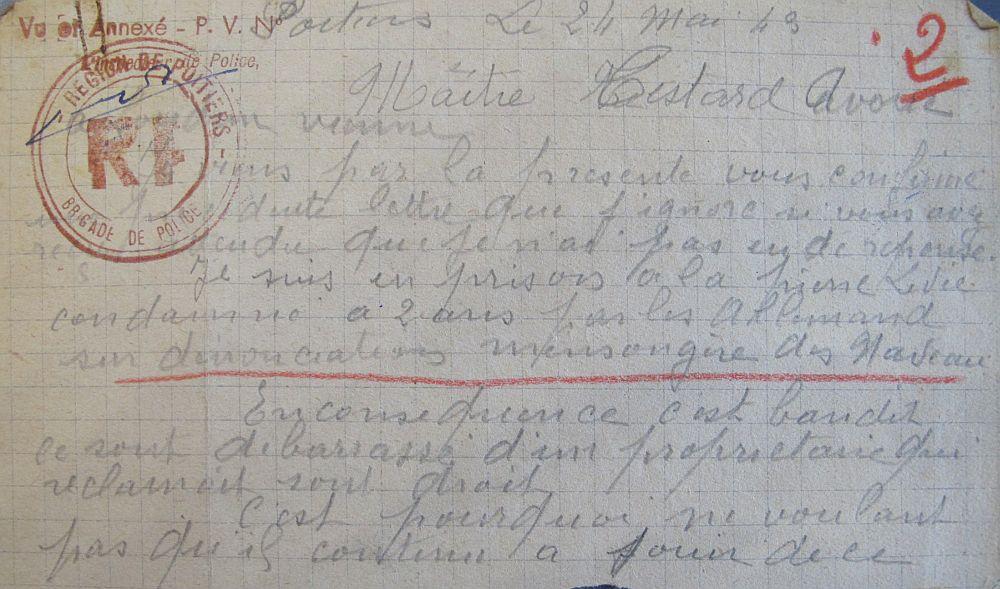 Vu et Annexé - P. V. N°
Poitiers Le 24 Mai 43
2
L'Inspecteur de Police,
REGION DE POITIERS -
RF
BRIGADE DE POLICE
Maitre Hestard Avoué
a Loudun vienne
Je viens par la presente vous confirmé
ma precedente lettre que j'ignore si vous avez
reçu attendu que je n'ai pas eu de reponse.
Je suis en prison a la pierre Levée
condamné a 2 ans par les Allemand
sur dénonciations mensongère des Nadeau
En consequence c'est bandit
ce sont débarrassé d'un propriétaire qui
reclamait sont droit
C'est pourquoi ne voulant
pas qu'il continu a jouir de ce